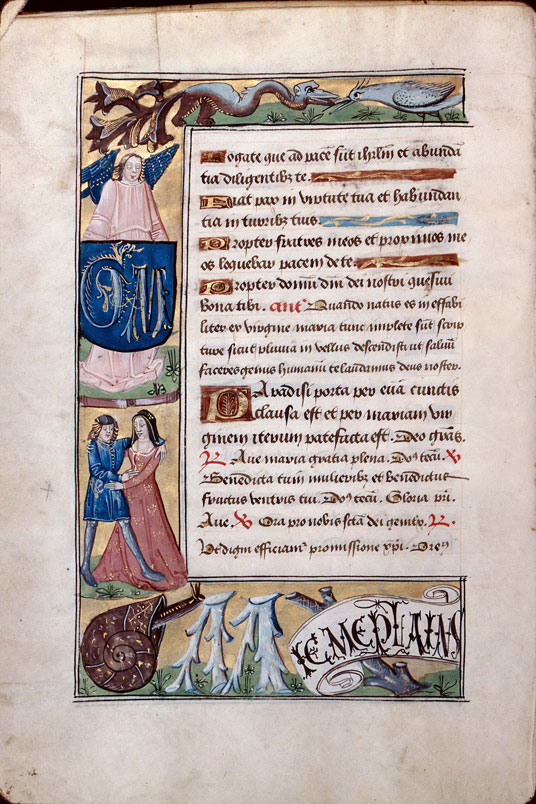 Rogate que ad pacē sūt ihrlm̄ et abunda
tia diligentibz te.
Fiat pax in virtute tua et habundan
tia in turribz tuis.
Propter fratres meos et proximos me
os loquebar pacem de te.
Propter domū dn̄i dei nostri quesiui
bona tibi. ant̄ Quando natus es in effabi
liter ex virgine maria tunc implete sūt scrip
ture sicut pluuia in vellus descendisti ut saluū
faceres genus humanū te laudamus deus noster.
Paradisi porta per euā cunctis
clausa est et per mariam vir
ginem iterum patefacta est. Deo grās.
R Aue maria gratia plena. Dn̄s tecū. V
Benedicta tu in mulieribz et benedictus
fructus ventris tui. Dn̄s tecū. Gloria pr̄i.
Aue. V Ora pro nobis sc̄tā dei genix̄. R
Vt digni efficiam̄ promissione xp̄i. Orem̄
IE ME PLAINS